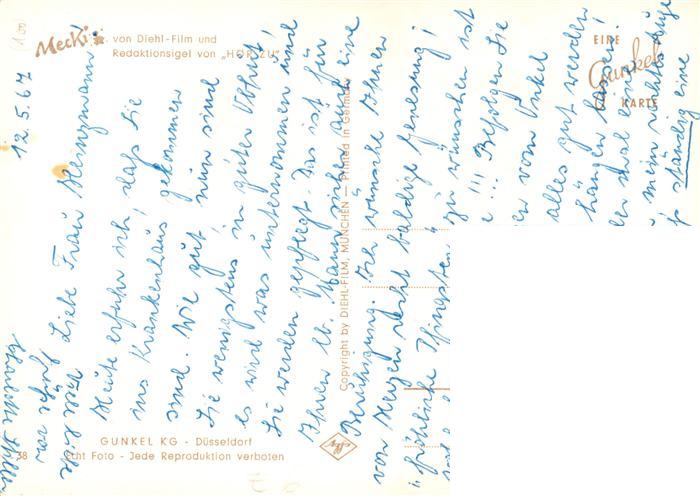 Mecki
von Diehl-Film und
Redaktionsigel von „HÖR ZU"
EINE
Gunkel
KARTE
12.5.67
Liebe Frau Heinzmann!
Heute erfuhr ich, daß Sie
ins Krankenhaus gekommen
sind. Wie gut, nun sind
Sie wenigstens in guter Obhut
es wird was unternommen und
Sie werden gepflegt. Das ist für
Ihren lb. Mann sicher auch eine
Beruhigung. Ich wünsche Ihnen
von Herzen recht baldige Genesung!
"fröhliche Pfingsten" zu wünschen ist
!!! Befolgen Sie
vom Onkel
alles gut werden
hängen lassen.
mal eine
mein rechtes Auge
ständig eine
war
Copyright by DIEHL-FILM, MÜNCHEN — Printed in Germany
GUNKEL KG - Düsseldorf
38
Echt Foto - Jede Reproduktion verboten